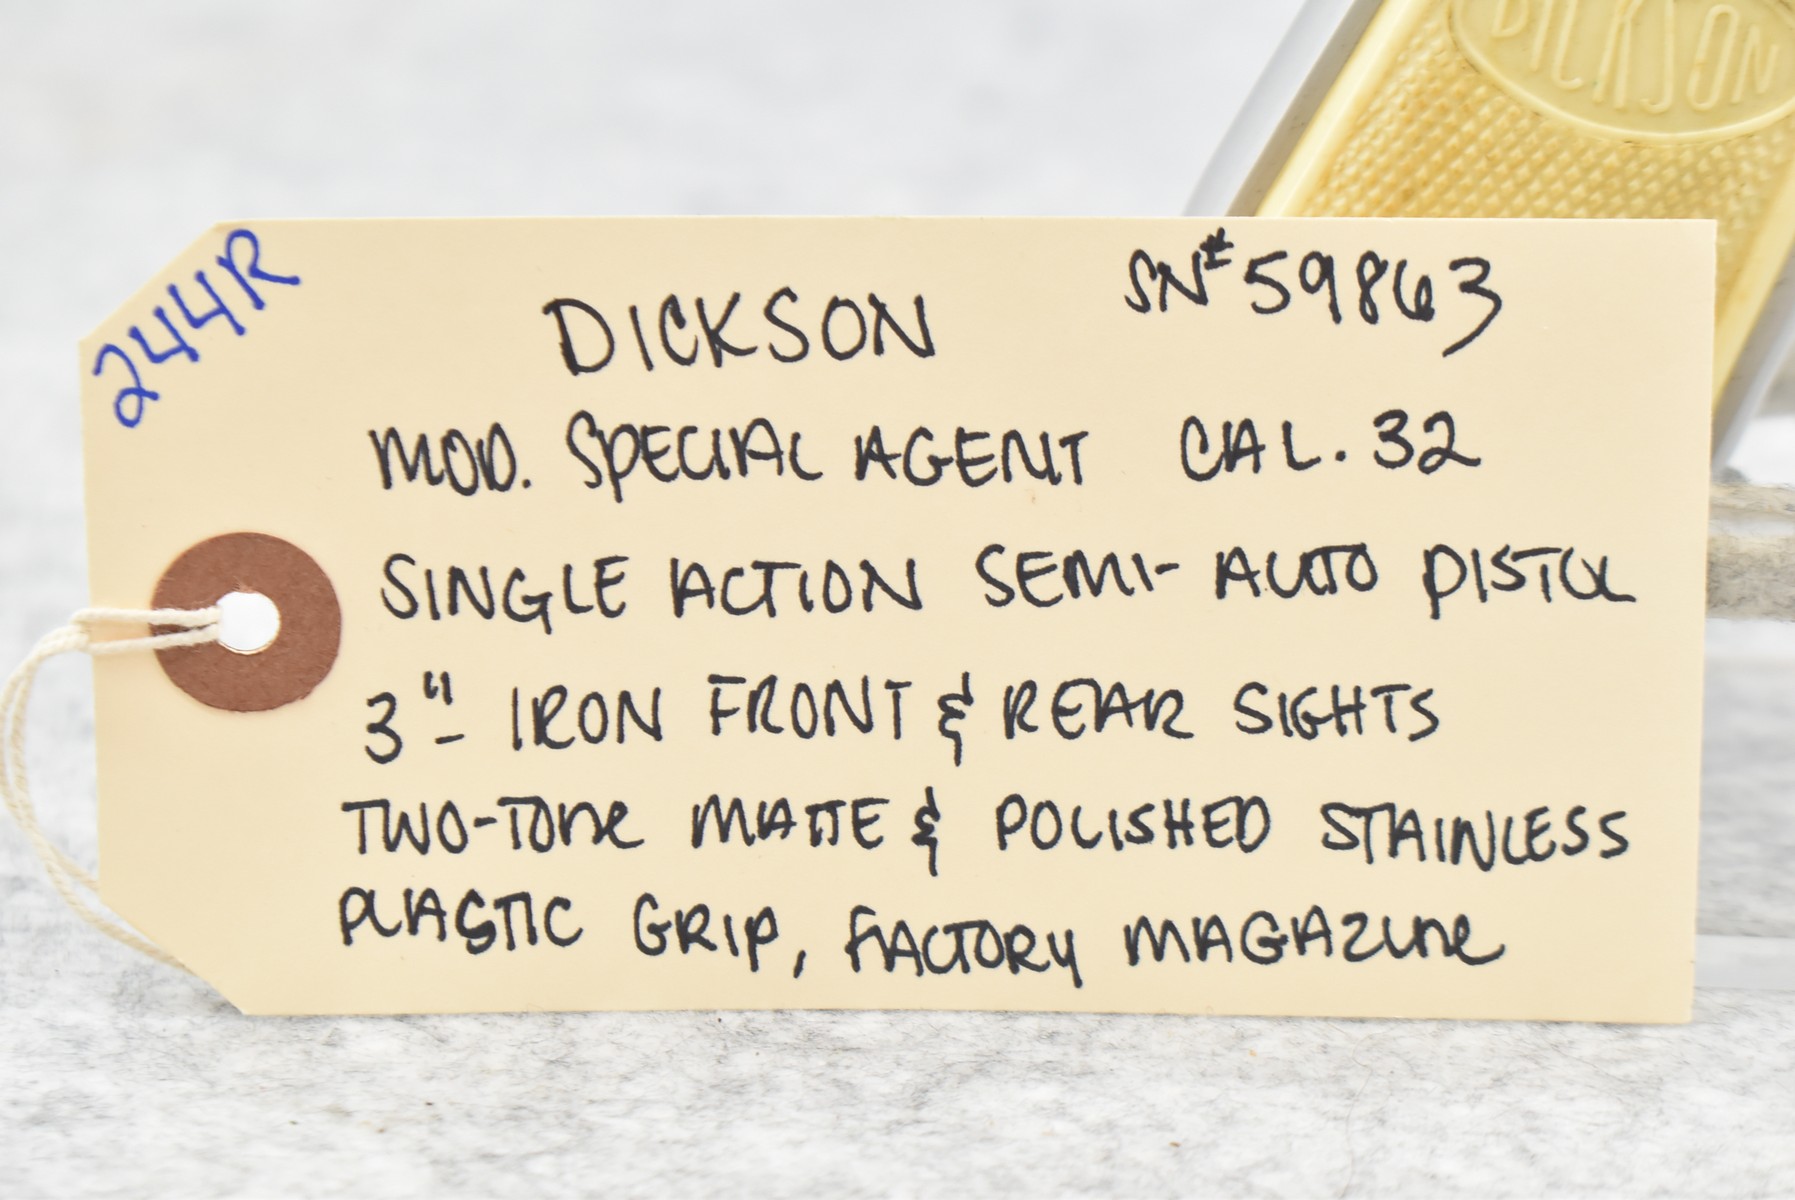 DICKSON
244R
DICKSON SN#59863
MOD. SPECIAL AGENT CAL. 32
SINGLE ACTION SEMI-AUTO PISTOL
3" - IRON FRONT & REAR SIGHTS
TWO-TONE MATTE & POLISHED STAINLESS
PLASTIC GRIP, FACTORY MAGAZINE